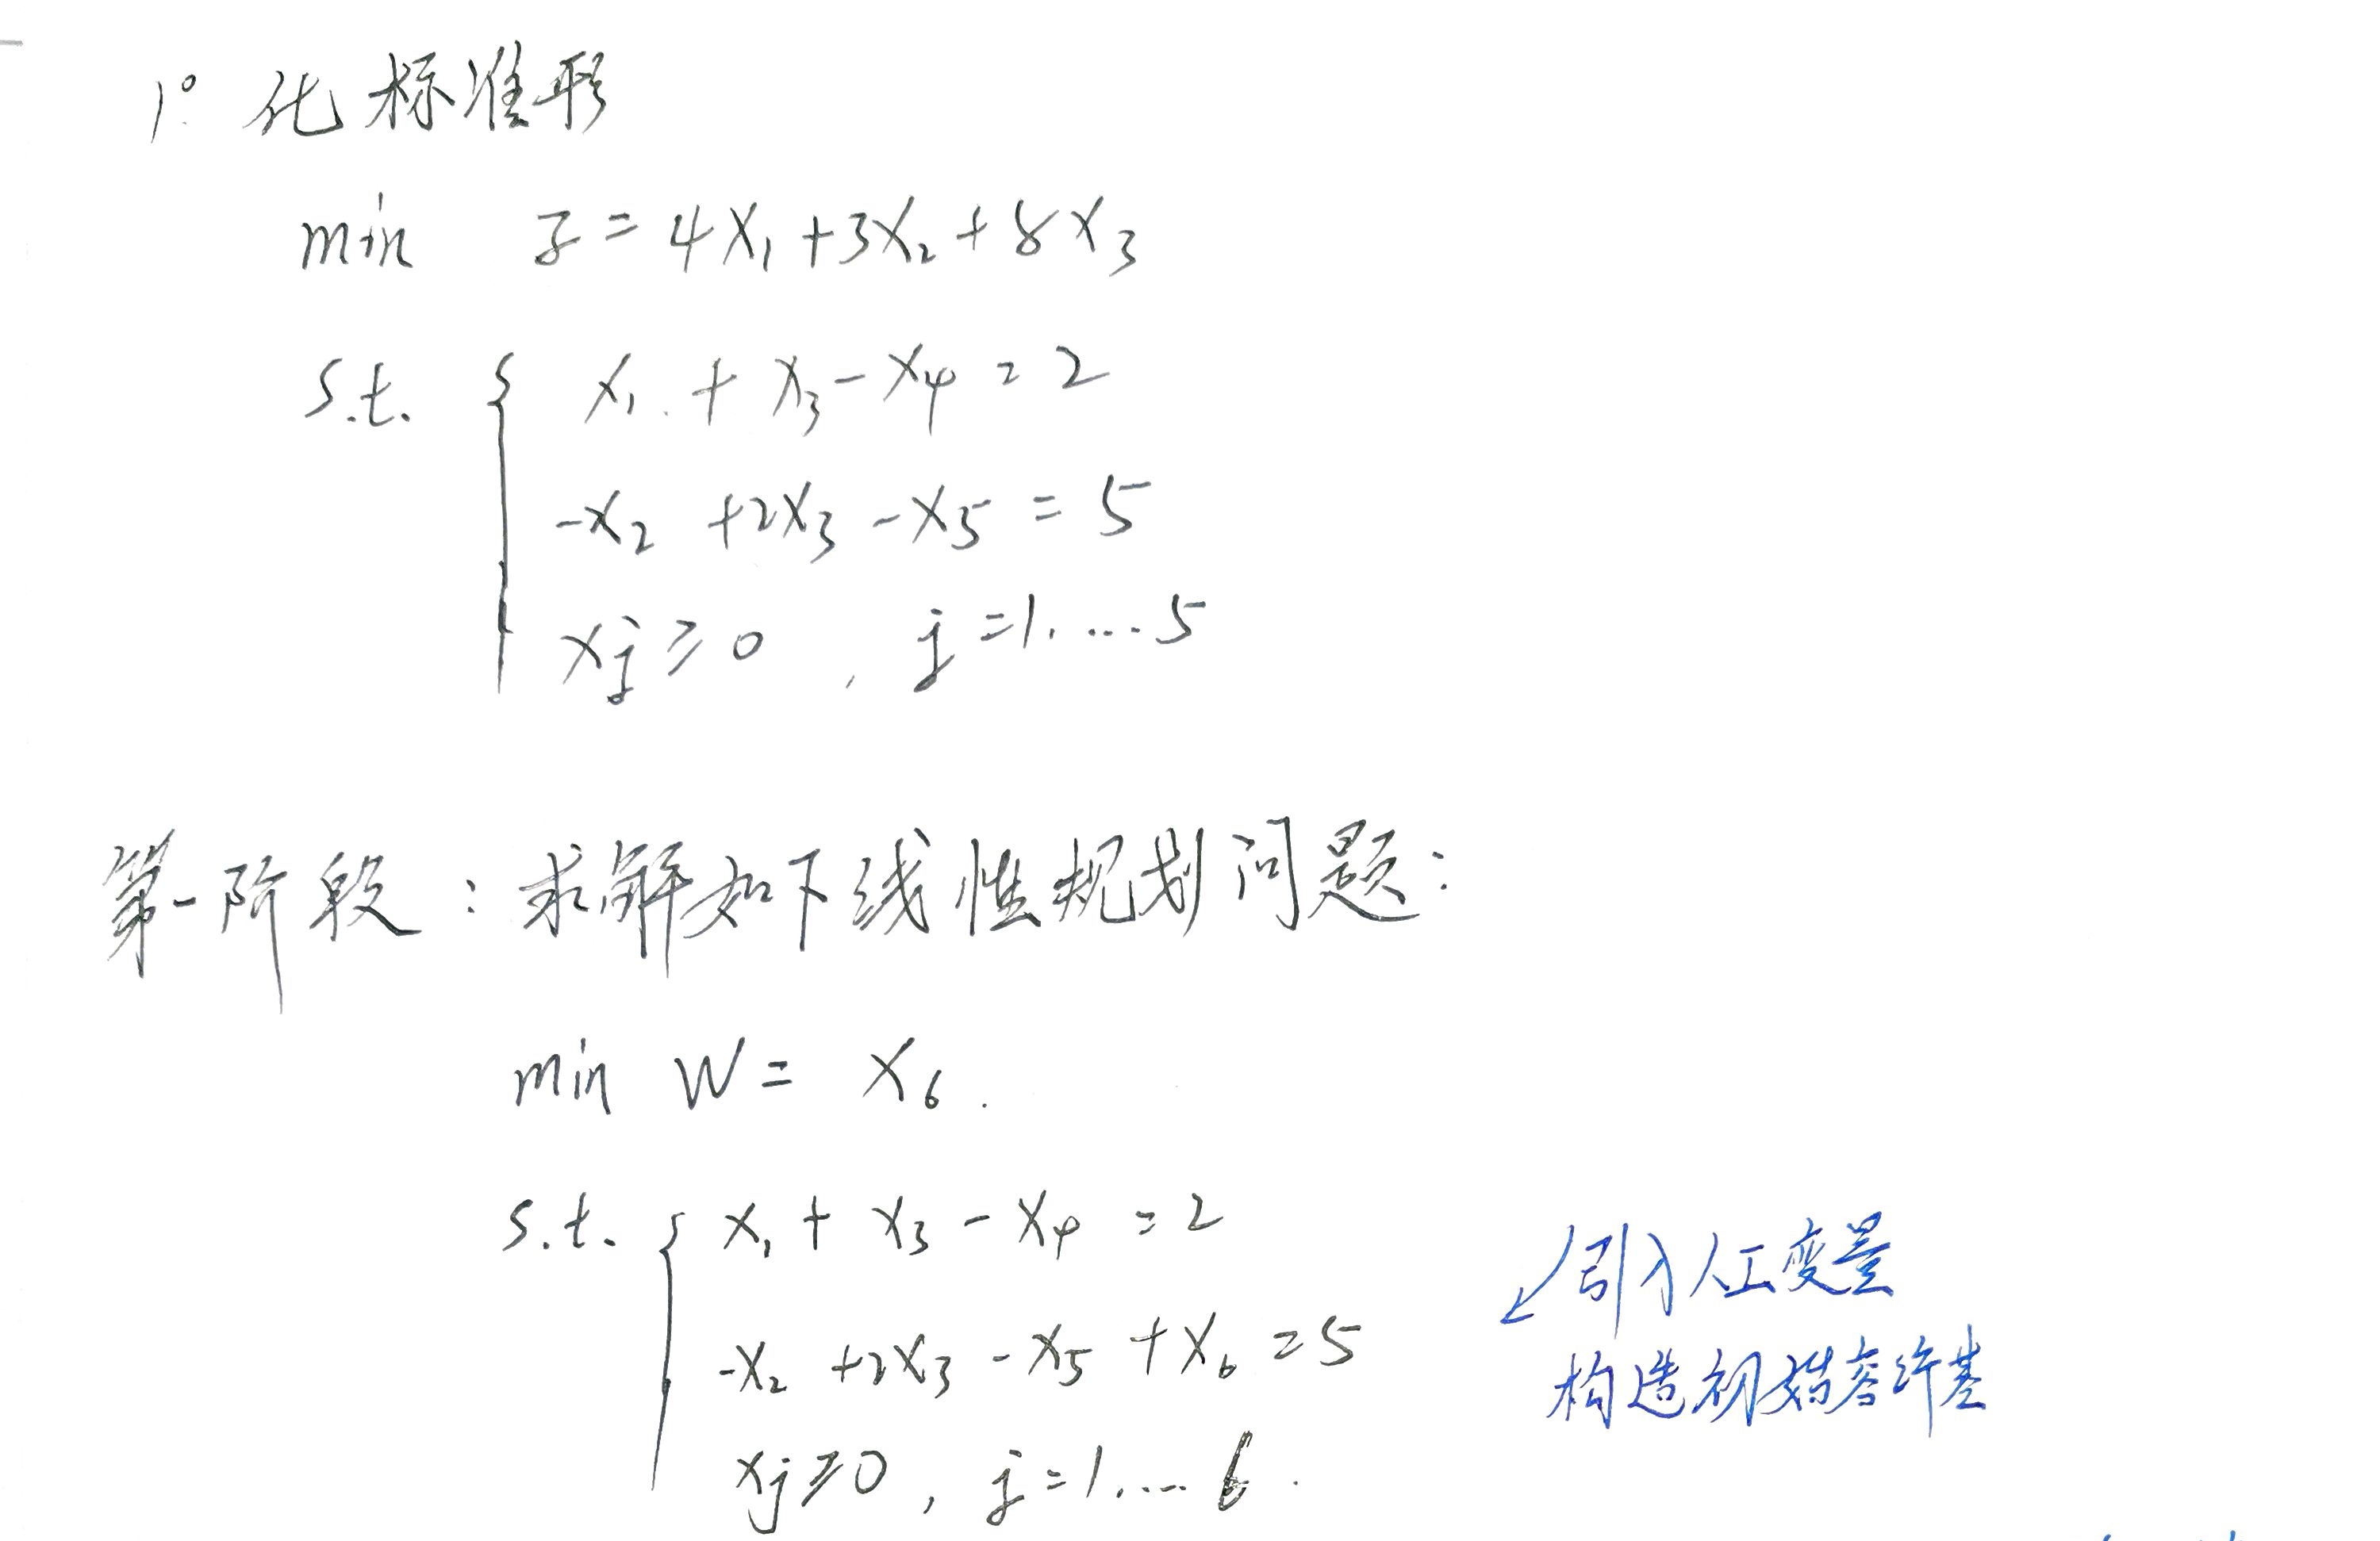 1° 化标准形
min z = 4x₁ + 3x₂ + 8x₃
s.t. { x₁ + x₃ - x₄ = 2
-x₂ + 2x₃ - x₅ = 5
xⱼ ≥ 0 , j = 1, ... 5
第一阶段 : 求解如下线性规划问题:
min W = x₆ .
s.t. { x₁ + x₃ - x₄ = 2
-x₂ + 2x₃ - x₅ + x₆ = 5
xⱼ ≥ 0 , j = 1, ... 6 .
↙引入人工变量
构造初始容许基